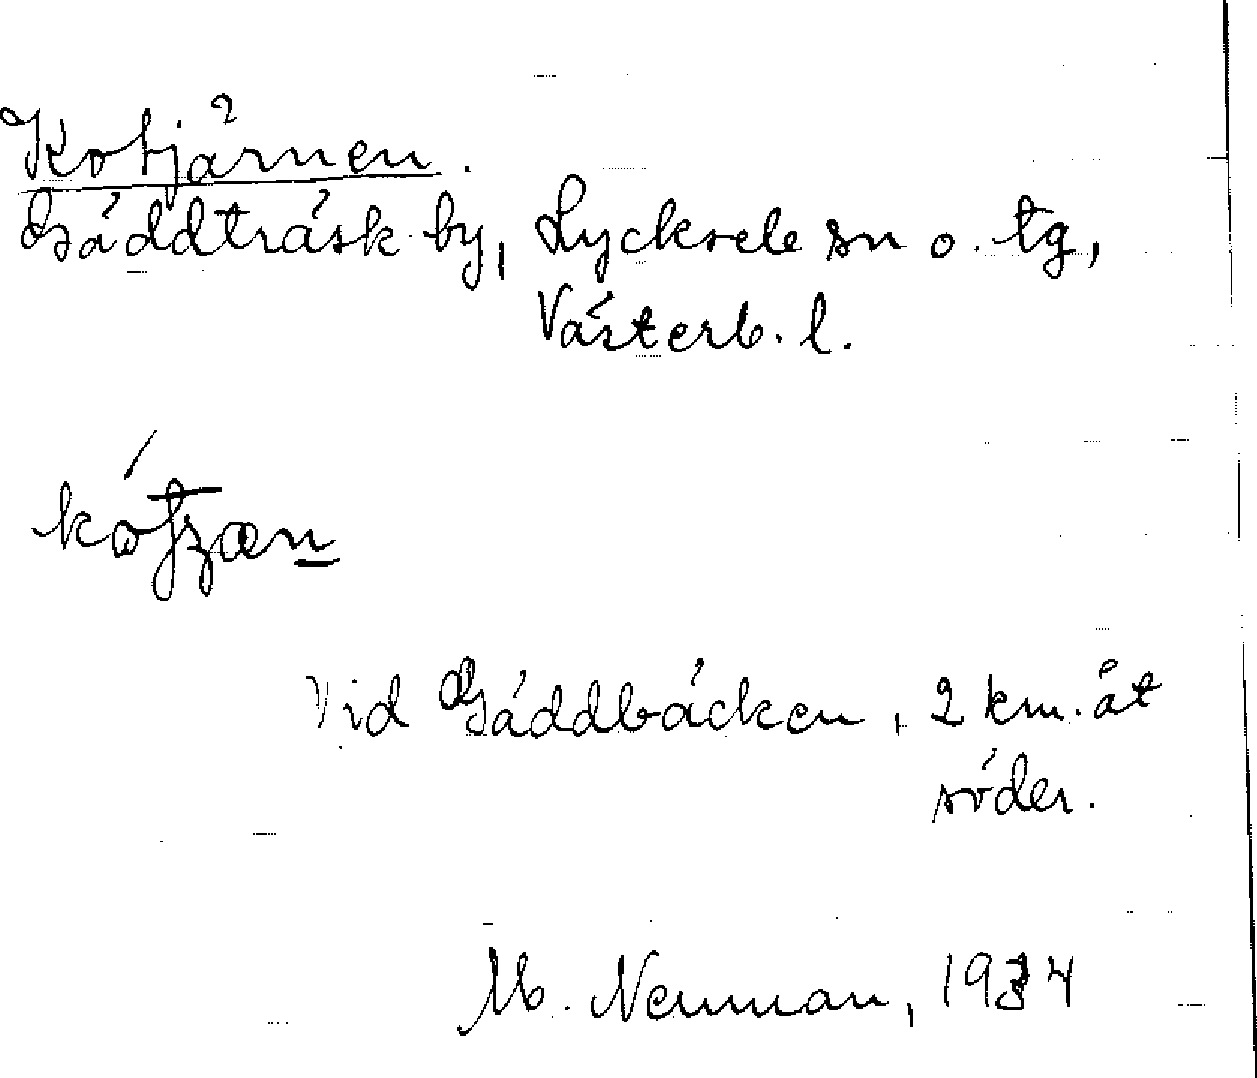 Kotjärnen.
Gäddträsk by, Lycksele sn o. tg,
Västerb. l.
Vid Gäddbäcken, 2 km. åt
söder.
M. Neuman, 1934